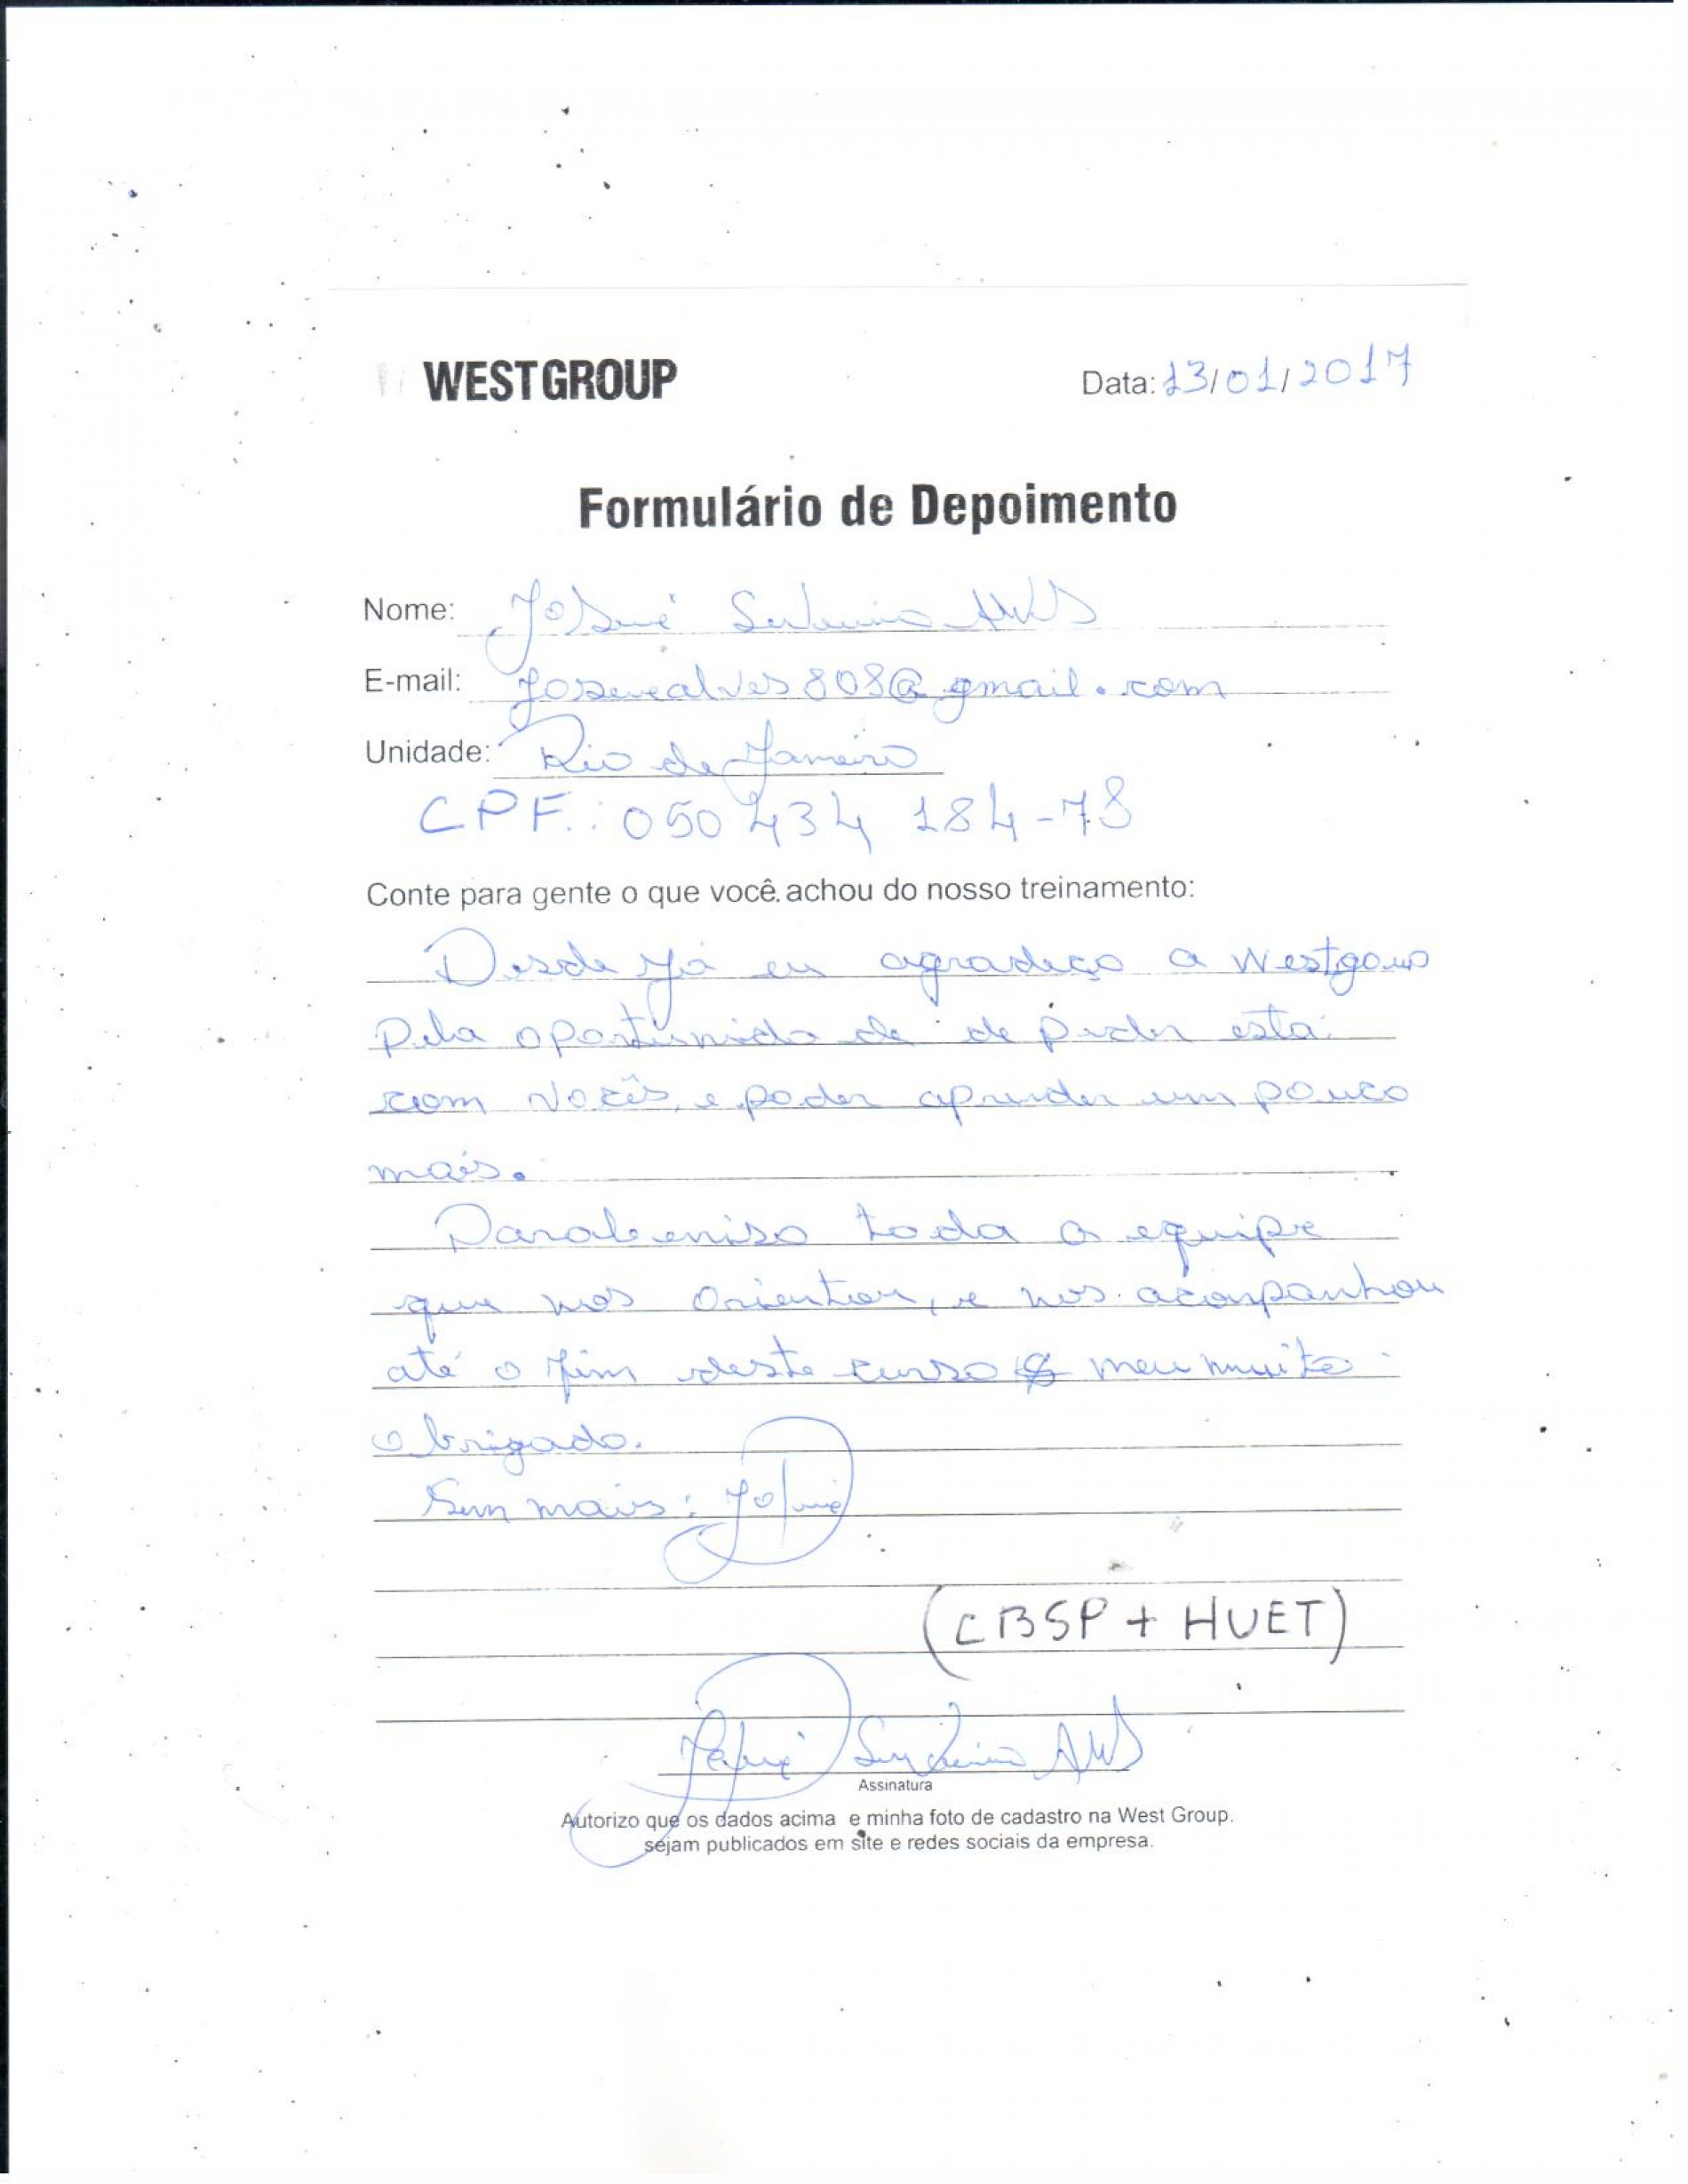 WEST GROUP
Data: 13/01/2017
Formulário de Depoimento
Nome: Josué
E-mail: josuealves808@gmail.com
Unidade: Rio de Janeiro
CPF.: 050 434 184-78
Conte para gente o que você achou do nosso treinamento:
Desde já eu agradeço a Westgoup
Pela oportunidade de puder está
com vocês, e poder aprender um pouco
mais.
Parabeniso toda a equipe
que nos orientou, e nos acompanhou
até o fim deste curso meu muito
obrigado.
Sem mais: Josué
(CBSP + HUET)
Josué
Assinatura
Autorizo que os dados acima e minha foto de cadastro na West Group.
sejam publicados em site e redes sociais da empresa.